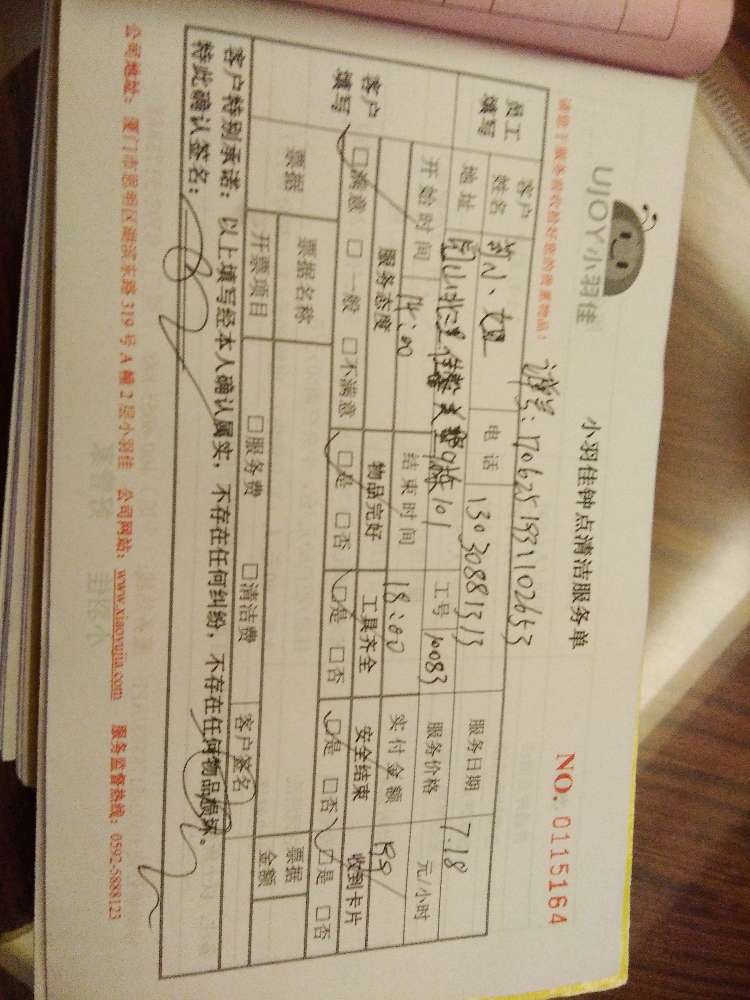 UJOY小羽佳
小羽佳钟点清洁服务单
NO. 0115164
请您于服务前收拾好您的贵重物品!
1706251931102653
员工填写
客户姓名
电话
13030881313
服务日期
7.18
地址
101
工号
10083
服务价格
元/小时
开始时间
14:00
结束时间
18:00
实付金额
客户填写
服务态度
物品完好
工具齐全
安全结束
收到卡片
□满意 □一般 □不满意
□是 □否
□是 □否
□是 □否
□是 □否
票据
票据名称
开票项目
□服务费 □清洁费
客户签名
票据金额
客户特别承诺: 以上填写经本人确认属实, 不存在任何纠纷, 不存在任何物品损坏。
特此确认签名:
公司地址: 厦门市思明区湖滨东路319号A幢2层小羽佳 公司网站: www.xiaoyujia.com 服务监督热线: 0592-5888123